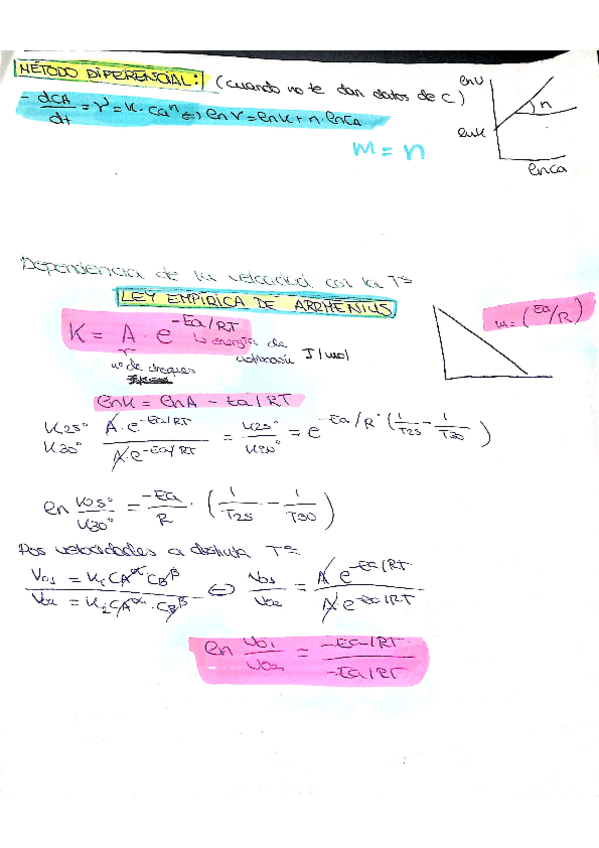 MÉTODO DIFERENCIAL: (cuando no te dan datos de C)
- dCA/dt = r = K · CA^n ⇔ ln r = ln K + n · ln CA
m = n
ln r
n
ln K
ln CA
Dependencia de la velocidad con la Tª
LEY EMPÍRICA DE ARRHENIUS
K = A · e^-Ea/RT
↳ energía de activación J/mol
nº de choques
m = (Ea/R)
ln K = ln A - Ea/RT
K25°/K30° A·e^-Ea/RT / A·e^-Ea/RT = K25°/K30° = e^-Ea/R · (1/T25 - 1/T30)
ln K25°/K30° = -Ea/R · (1/T25 - 1/T30)
Dos velocidades a distinta Tª
Vo1 = K1 CA^α CB^β / Vo2 = K2 CA^α · CB^β ⇔ Vo1/Vo2 = A e^-Ea/RT / A · e^-Ea/RT
ln Vo1/Vo2 = -Ea/RT / -Ea/RT